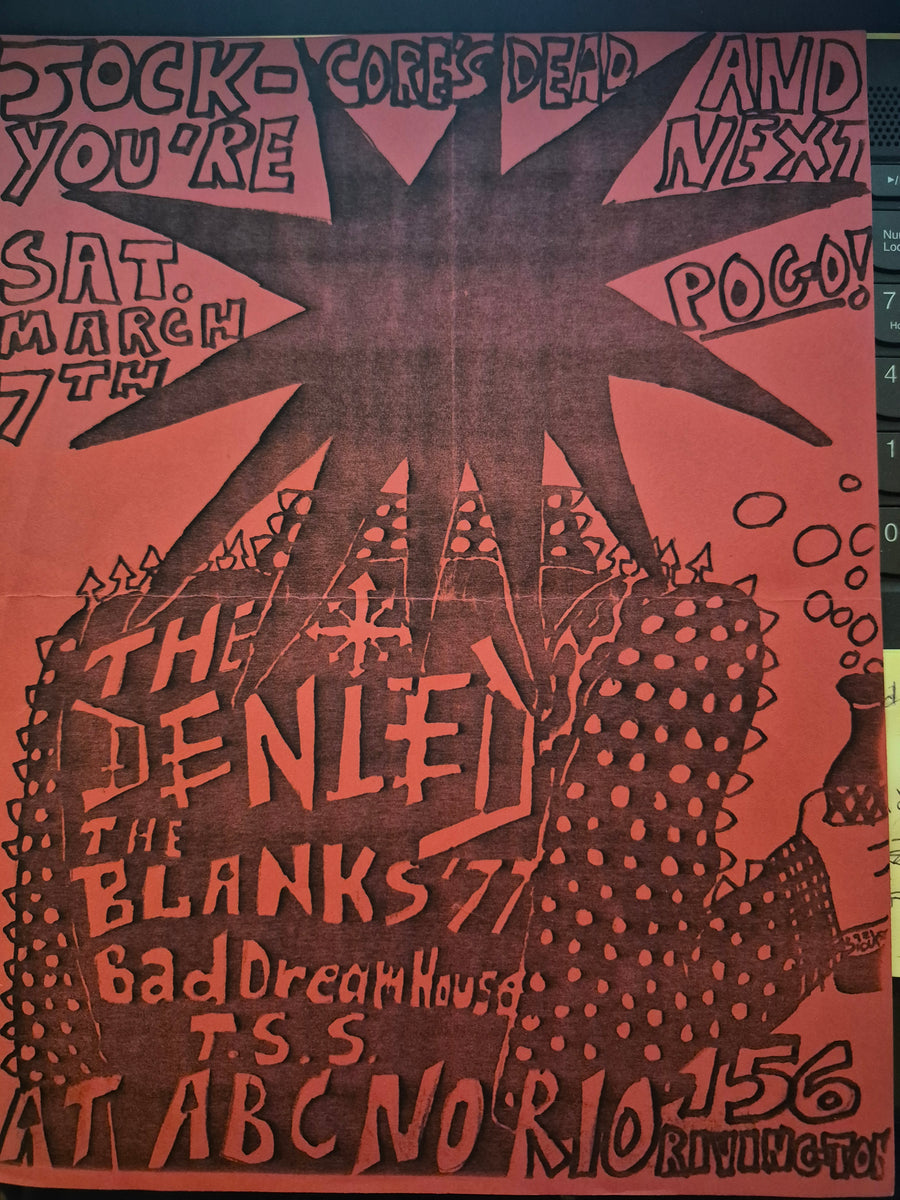 JOCK-CORE'S DEAD AND
YOU'RE NEXT
POGO!
SAT.
MARCH
7TH
THE
DENIED
THE
BLANKS '77
Bad Dream House
T.S.S.
AT ABC NO RIO 156
RIVINGTON
7
4
1
0